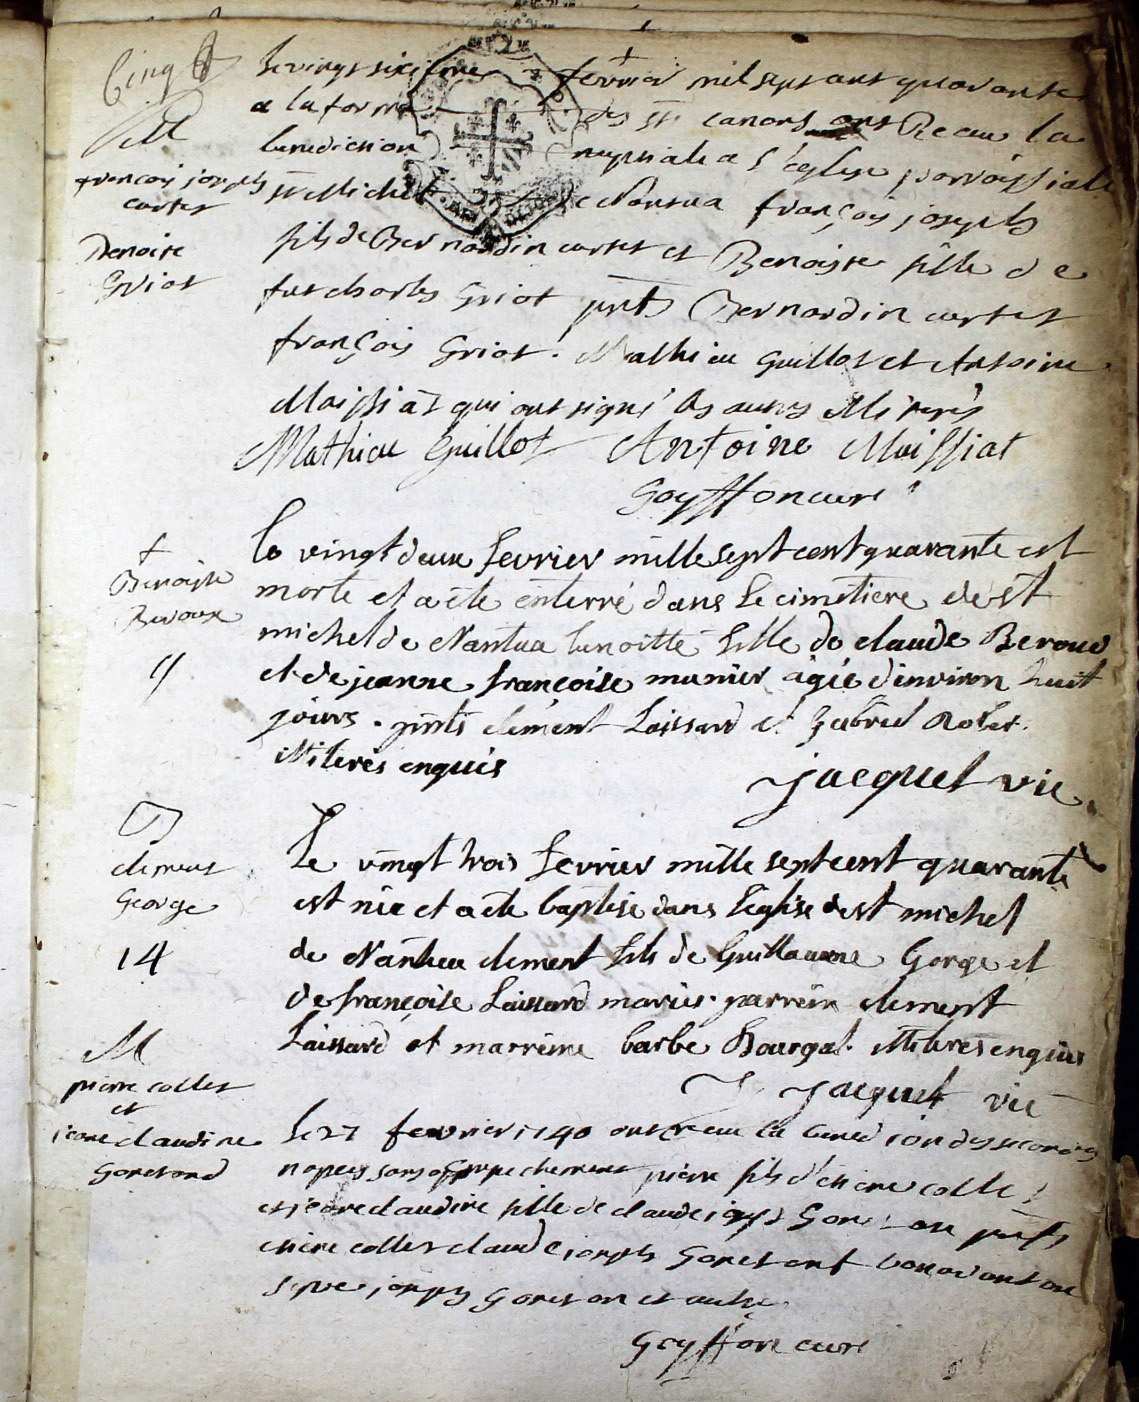 Cinq
M
françois joseph
cartet
Benoite
Griot
le vingt sixieme fevrier mil sept cent quarante
a la forme des sts canons ont Receu la
benediction nuptiale a l'eglise parroissiale
st Michel de Nantua françois joseph
fils de Bernardin cartet et Benoiste fille de
fut charles Griot pnts Bernardin cartet
françois Griot. Mathieu Guillot et Antoine
Maissiat qui ont signé les autres Miterés
Mathieu Guillot Antoine Maissiat
Goyffon curé
†
Benoiste
Beroux
9
le vingt deux fevrier mille sept cent quarante est
morte et a ete enterré dans le cimetiere de st
michel de Nantua benoitte fille de claude Beroud
et de jeanne françoise munier agée d'environ huit
jours. pnts clement Laissard et gabriel Rolet.
Miterés enquis
jacquet vic
clement
George
14
Le vingt trois fevrier mille sept cent quarante
est née et a ete baptisé dans l'eglise de st michel
de Nantua clement fils de Guillaume Gorge et
de françoise Laissard mariés. parrein clement
Laissard et marreine barbe Bourgat. Miterés enquis
jacquet vic
M
pierre collet
et
jeane claudine
Gonetand
le 27 fevrier 1740 ont receu la bened ion des secondes
nopces sans empechement pierre fils d'etiene collet
et jeane claudine fille de claude joseph Gonetan pnts
etiene collet claude joseph Gonetant
joseph Goneton et autre
Goyffon curé